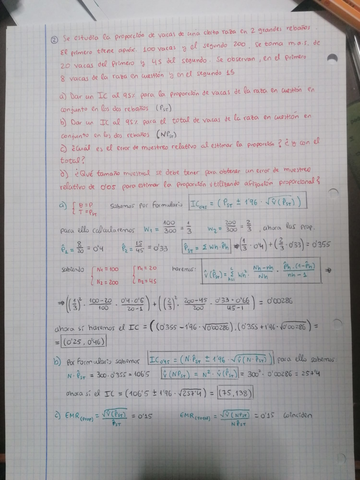 ② Se estudia la proporción de vacas de una cierta raza en 2 grandes rebaños
El primero tiene 100 vacas y el segundo 200. Se toma m.a.s. de
20 vacas del primero y 45 del segundo. Se observan, en el primero
8 vacas de la raza en cuestión y en el segundo 15
a) Dar un IC al 95% para la proporción de vacas de la raza en cuestión en
conjunto en los dos rebaños (P_ST)
b) Dar un IC al 95% para el total de vacas de la raza en cuestión en
conjunto en los dos rebaños (NP_ST)
c) ¿Cuál es el error de muestreo relativo al estimar la proporción? ¿Y con el
total?
d) ¿Qué tamaño muestral se debe tomar para obtener un error de muestreo
relativo de 0'02 para estimar la proporción utilizando afijación proporcional?
a) Sabemos por formulario IC_0'95 = (P_ST ± 1'96 · √V̂(P_ST))
para ello calculamos W1 = 100/300 = 1/3 W2 = 200/300 = 2/3, ahora las prop.
P̂1 = 8/20 = 0'4 P̂2 = 15/45 = 0'33 P_ST = Σ Wh · Ph = (1/3 · 0'4) + (2/3 · 0'33) = 0'355
sabiendo N1 = 100 N2 = 200 n1 = 20 n2 = 45 Haremos: V̂(P_ST) = Σ Wh² · (Nh-nh)/Nh · P̂h · (1-P̂h)/(nh-1)
⇒ ((1/3)² · (100-20)/100 · (0'4 · 0'6)/(20-1)) + ((2/3)² · (200-45)/200 · (0'33 · 0'66)/(45-1)) = 0'00286
ahora si haremos el IC = ((0'355 - 1'96 · √0'00286), (0'355 + 1'96 · √0'00286)) =
= (0'25, 0'46)
b) Por formulario sabemos IC_0'95 = (N · P_ST ± 1'96 · √V̂(N · P_ST)) para ello sabemos
N · P_ST = 300 · 0'355 = 106'5 V̂(NP_ST) = N² · V̂(P_ST) = 300² · 0'00286 = 257'4
ahora si el IC = (106'5 ± 1'96 · √257'4) = (75, 138)
c) EMR(prop) = √V̂(P_ST)/P_ST = 0'15 EMR(total) = √V̂(NP_ST)/NP_ST = 0'15 coinciden